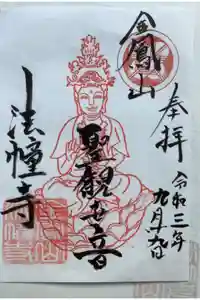 奉拝
令和三年
九月十九日
金鳳山
聖観世音
法幢寺